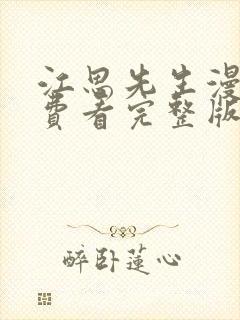 江思先生漫
费看完整版
醉卧蓮心